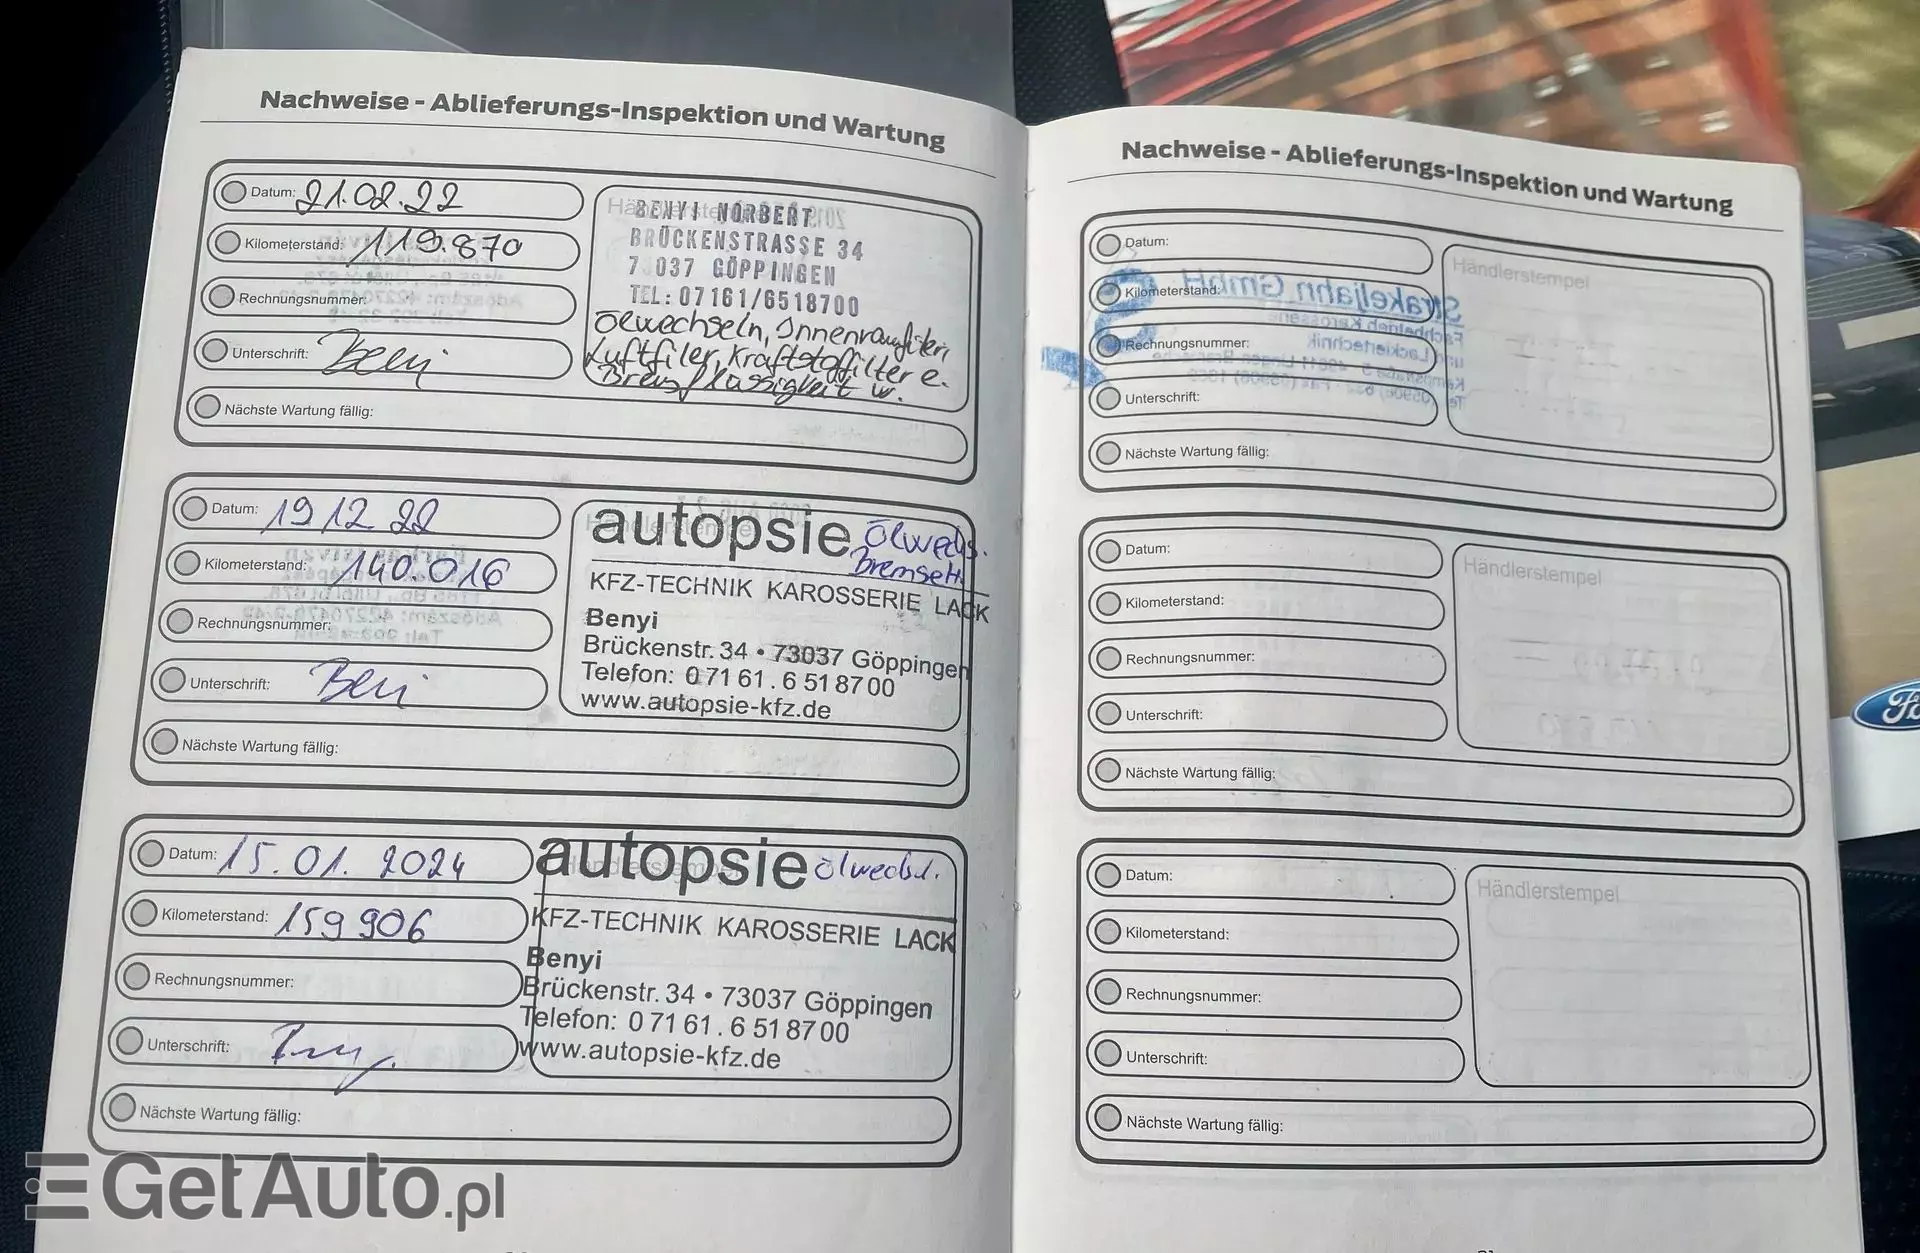 Nachweise - Ablieferungs-Inspektion und Wartung
Datum: 21.02.22
Kilometerstand: 119.870
Rechnungsnummer:
Unterschrift:
Nächste Wartung fällig:
Händlerstempel
BENYI NORBERT
BRÜCKENSTRASSE 34
7 037 GÖPPINGEN
TEL: 07161/6518700
Ölwechseln, Innenraumfilter,
Luftfiler, Kraftstoffilter e.
w.
Datum: 19 12 22
Kilometerstand: 140.016
Rechnungsnummer:
Unterschrift:
Nächste Wartung fällig:
Händlerstempel
autopsie Ölwechs.
KFZ-TECHNIK KAROSSERIE LACK
Benyi
Brückenstr. 34 • 73037 Göppingen
Telefon: 0 71 61 . 6 51 87 00
www.autopsie-kfz.de
Datum: 15.01.2024
Kilometerstand: 159 906
Rechnungsnummer:
Unterschrift:
Nächste Wartung fällig:
Händlerstempel
autopsie Ölwechsl.
KFZ-TECHNIK KAROSSERIE LACK
Benyi
Brückenstr. 34 • 73037 Göppingen
Telefon: 0 71 61 . 6 51 87 00
www.autopsie-kfz.de
Nachweise - Ablieferungs-Inspektion und Wartung
Datum:
Kilometerstand:
Rechnungsnummer:
Unterschrift:
Nächste Wartung fällig:
Händlerstempel
Datum:
Kilometerstand:
Rechnungsnummer:
Unterschrift:
Nächste Wartung fällig:
Händlerstempel
Datum:
Kilometerstand:
Rechnungsnummer:
Unterschrift:
Nächste Wartung fällig:
Händlerstempel
GetAuto.pl